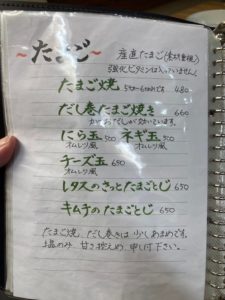 ～たまご～
産直たまご
強化ビタミンは入っていません
たまご焼 480
だし巻たまご焼き 660
かつおだしが効いています。
にら玉 500 ネギ玉 500
オムレツ風 オムレツ風
チーズ玉 650
オムレツ風
レタスのさっとたまごとじ 650
キムチのたまごとじ 650
たまご焼、だし巻きは少しあまめです。
塩のみ、甘さ控えめ 申し付下さい。